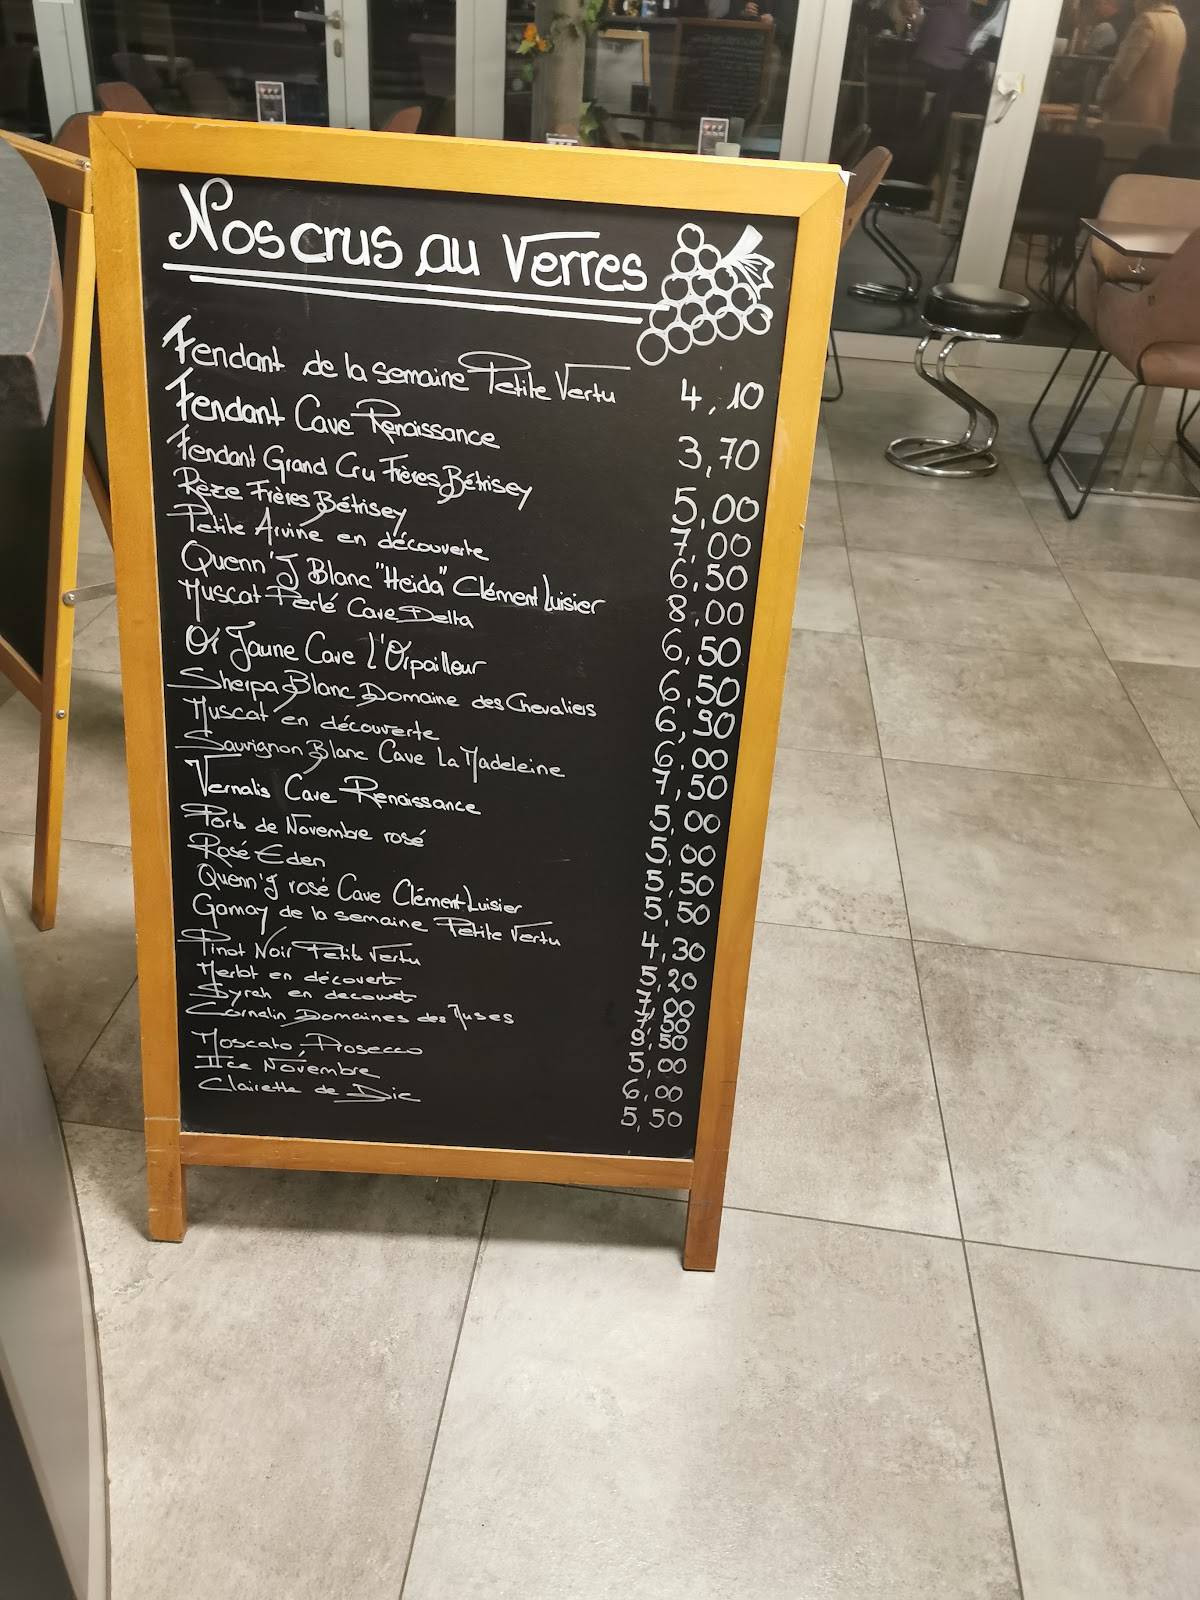 Nos crus au Verres
Fendant de la semaine Petite Vertu 4,10
Fendant Cave Renaissance 3,70
Fendant Grand Cru Frères Bétrisey 5,00
Rèze Frères Bétrisey 7,00
Petite Arvine en découverte 6,50
Quenn'J Blanc "Heida" Clément Luisier 8,00
Muscat Perlé Cave Delta 6,50
Or Jaune Cave L'Orpailleur 6,50
Sherpa Blanc Domaine des Chevaliers 6,90
Muscat en découverte 6,00
Sauvignon Blanc Cave La Madeleine 7,50
Vernalis Cave Renaissance 5,00
Porte de Novembre rosé 5,00
Rosé Eden 5,50
Quenn'J rosé Cave Clément Luisier 5,50
Gamay de la semaine Petite Vertu 4,30
Pinot Noir Petite Vertu 5,20
Merlot en découverte 7,00
Syrah en découverte 7,50
Cornalin Domaines des Muses 9,50
Moscato Prosecco 5,00
IIce Novembre 6,00
Clairette de Die 5,50